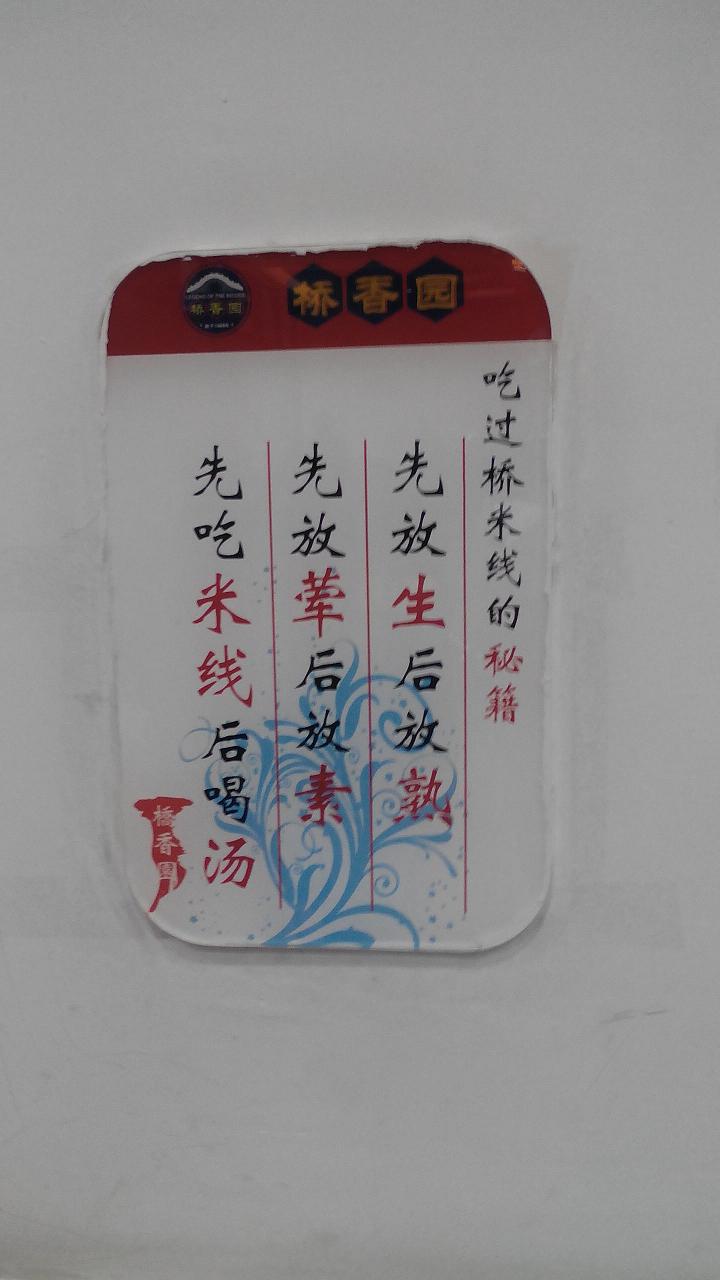 LEGEND OF THE BRIDGE
桥香园
桥香园
吃过桥米线的秘籍
先放生后放熟
先放荤后放素
先吃米线后喝汤
橋香園